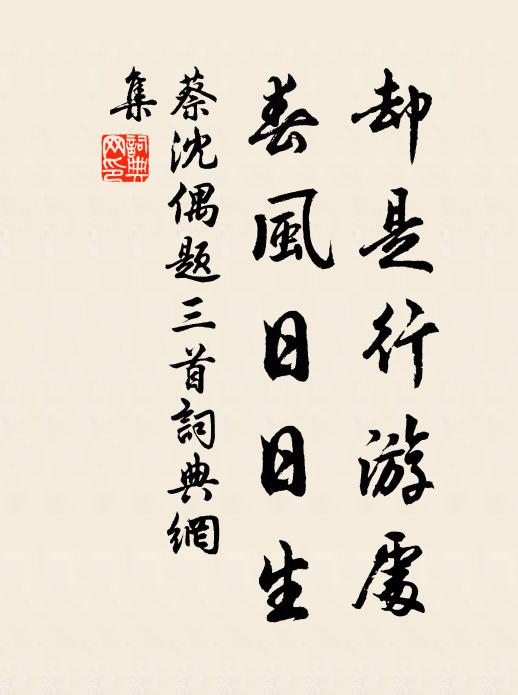 却是行游處
春風日日生
蔡沈偶题三首詞典網
集
詞典网印